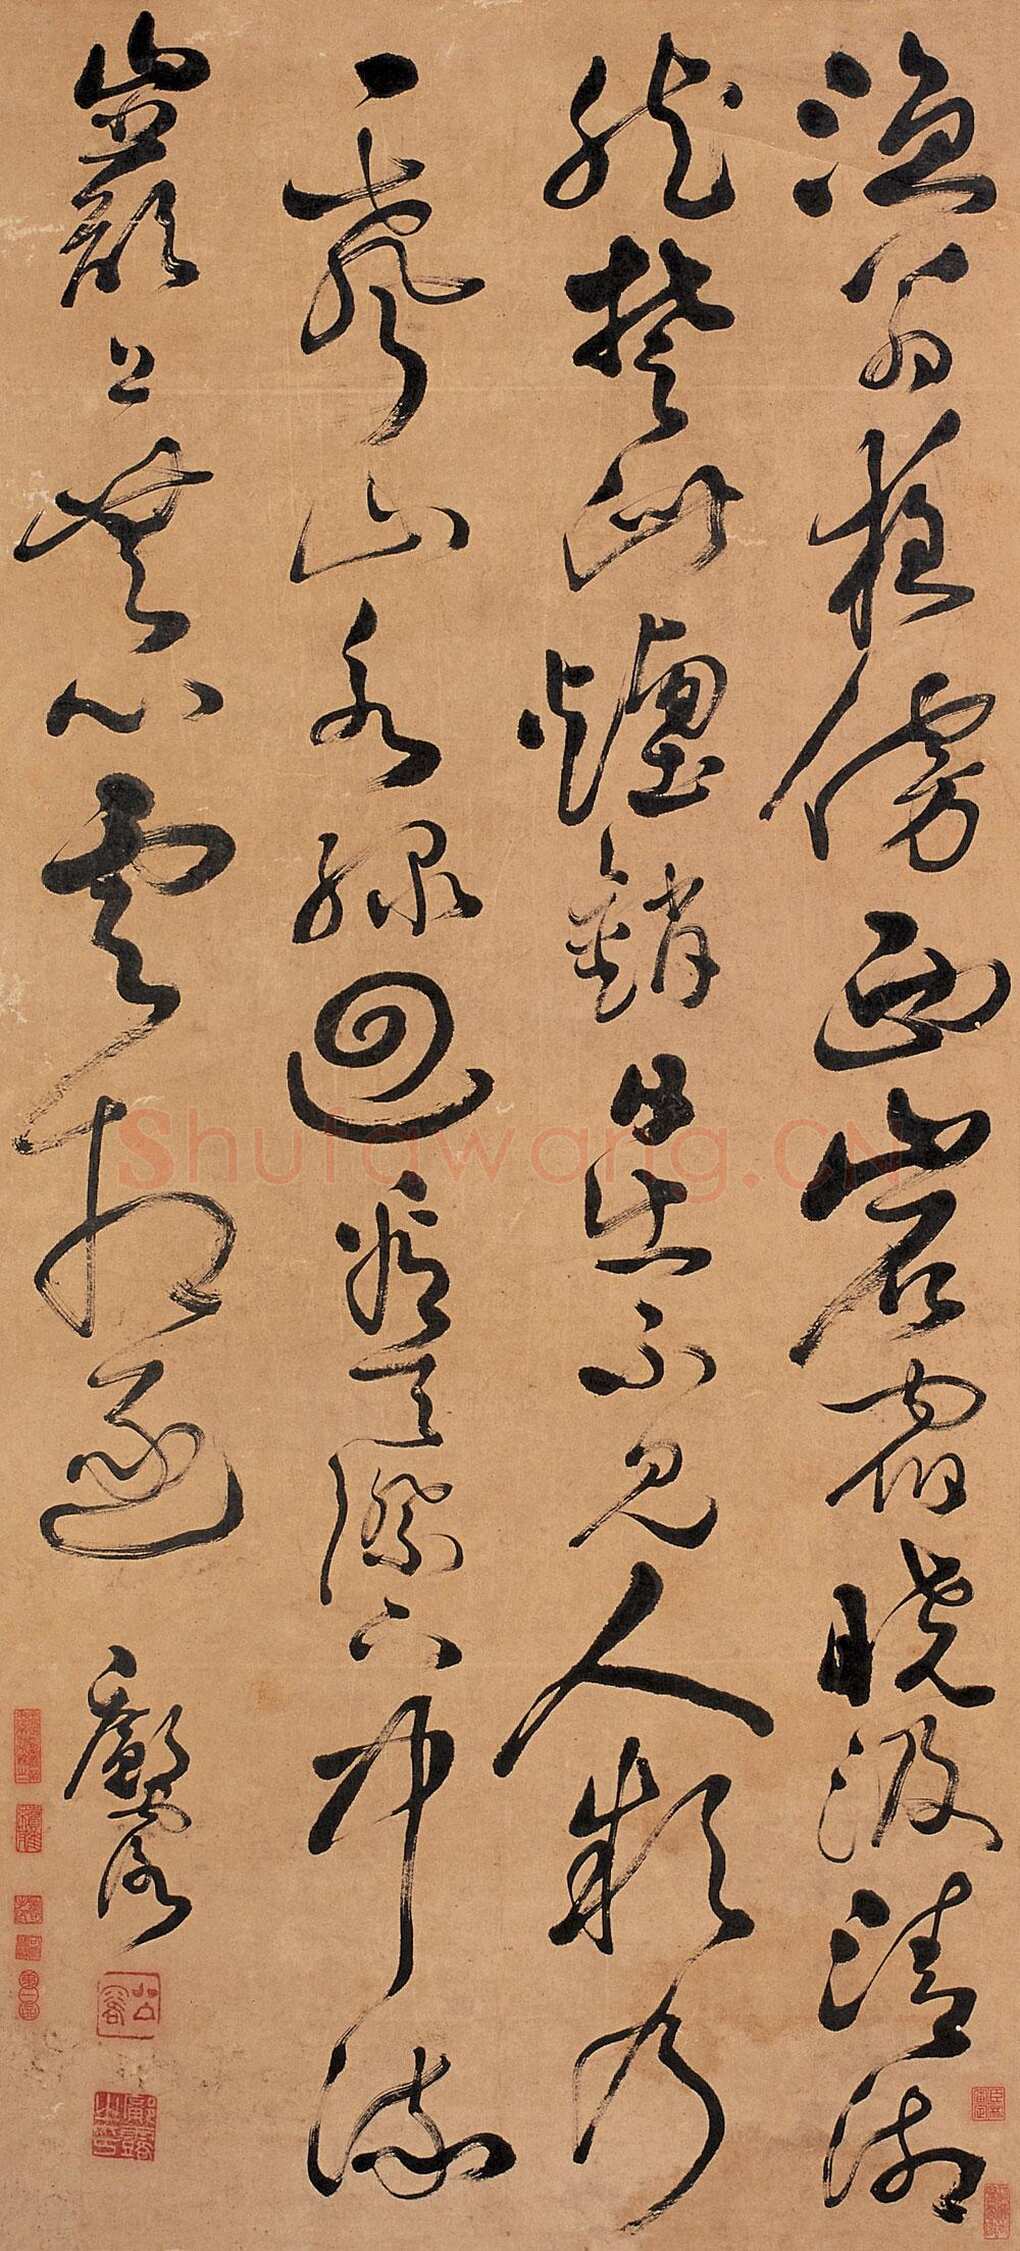 漁翁夜傍西岩宿曉汲清湘
然楚竹煙銷日出不見人欸乃
一聲山水綠迴看天際下中流
巖上無心雲相逐
鄺露
鄺露之印
Shufawang.CN